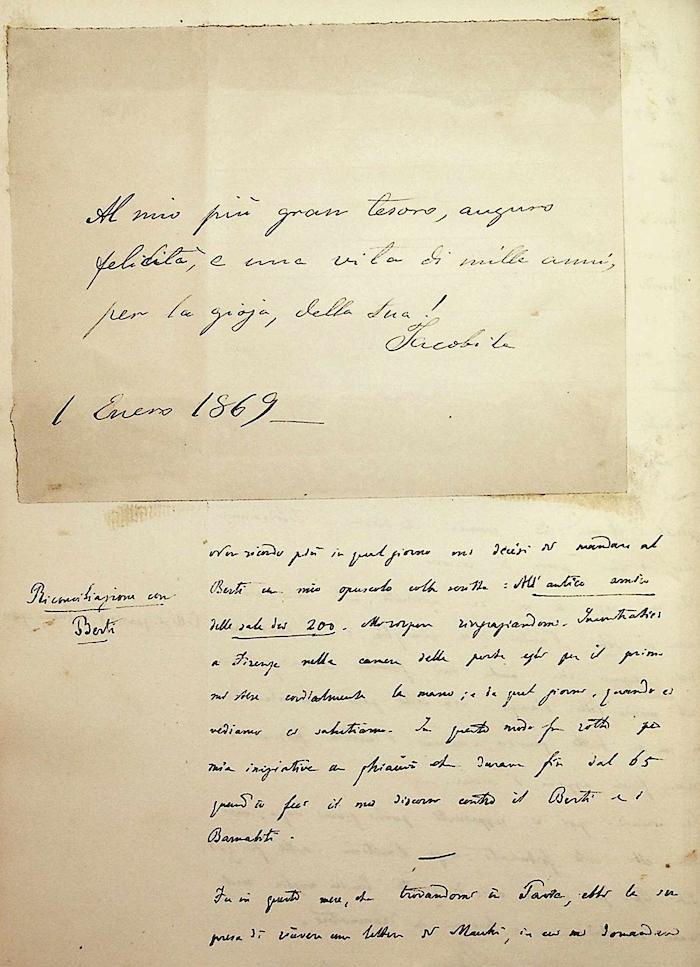 Al mio più gran tesoro, auguro
felicità, e una vita di mille anni,
per la gioja, della tua!
Jacobita
1 Enero 1869
Riconciliazione con
Berti
Non ricordo più in qual giorno mi decisi di mandare al
Berti un mio opuscolo colla scritta: All'antico amico
delle sale dei 200. Mi rispose ringraziandomi. Incontratici
a Firenze nella camera della posta egli per il primo
mi stese cordialmente la mano; e da quel giorno, quando ci
vediamo ci salutiamo. In questo modo fu rotto per
mia iniziativa un ghiaccio che durava fin dal 65
quand'io feci il mio discorso contro il Berti e i
Barnabiti.
Fu in questo mese, che trovandomi a Pavia, ebbi la sor
presa di ricevere una lettera di in cui mi domandava